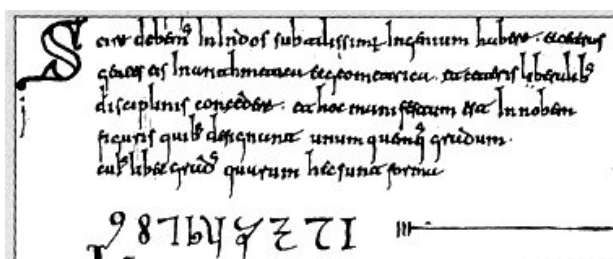 Scire debem⁹ In Indos subtilissimū Ingenium habere · et ceteras
gentes eis In arithmetica et geometrica · et ceteris liberalib⁹
disciplinis concedere · et hoc manifestum est In nobem
figuris quib⁹ designant unum quemq̄ gradum ·
cui⁹ libet grad⁹ quarum hec sunt forma
9 8 7 6 5 4 3 2 1